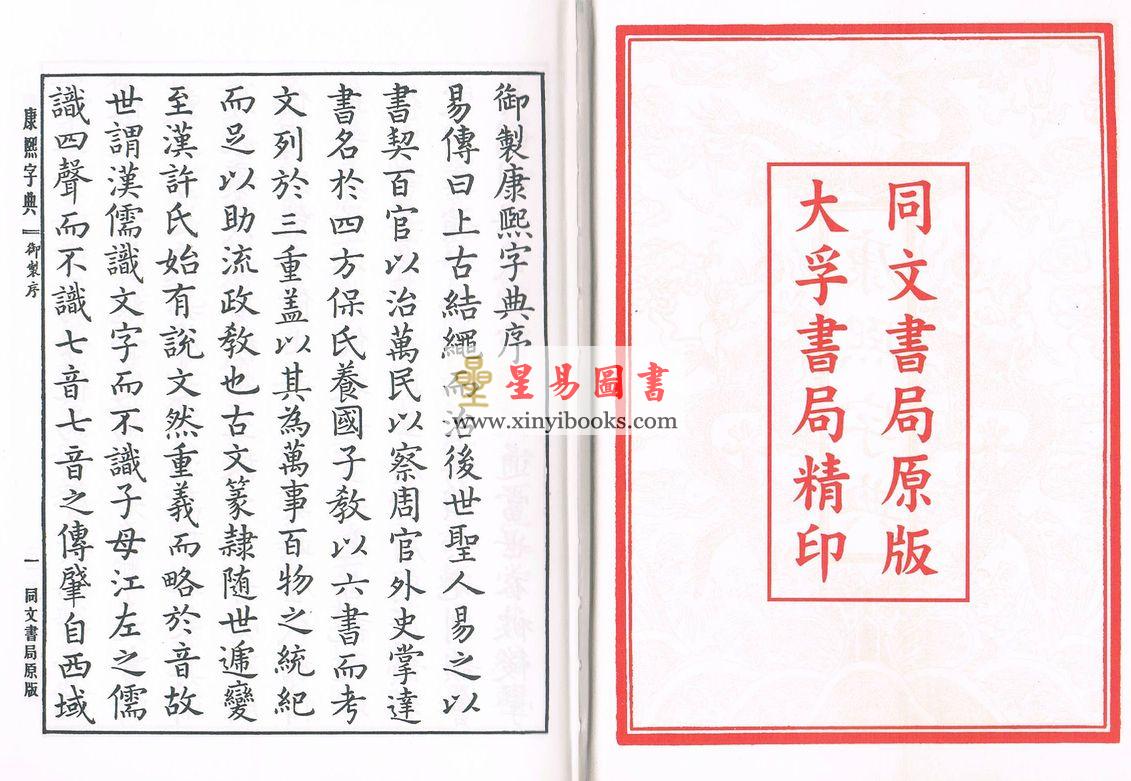 同文書局原版
大孚書局精印
御製康熙字典序
易傳曰上古結繩而治後世聖人易之以
書契百官以治萬民以察周官外史掌達
書名於四方保氏養國子教以六書而考
文列於三重蓋以其為萬事百物之統紀
而足以助流政教也古文篆隸隨世遞變
至漢許氏始有說文然重義而略於音故
世謂漢儒識文字而不識子母江左之儒
識四聲而不識七音七音之傳肇自西域
康熙字典 御製序 一 同文書局原版
星易圖書
www.xinyibooks.com